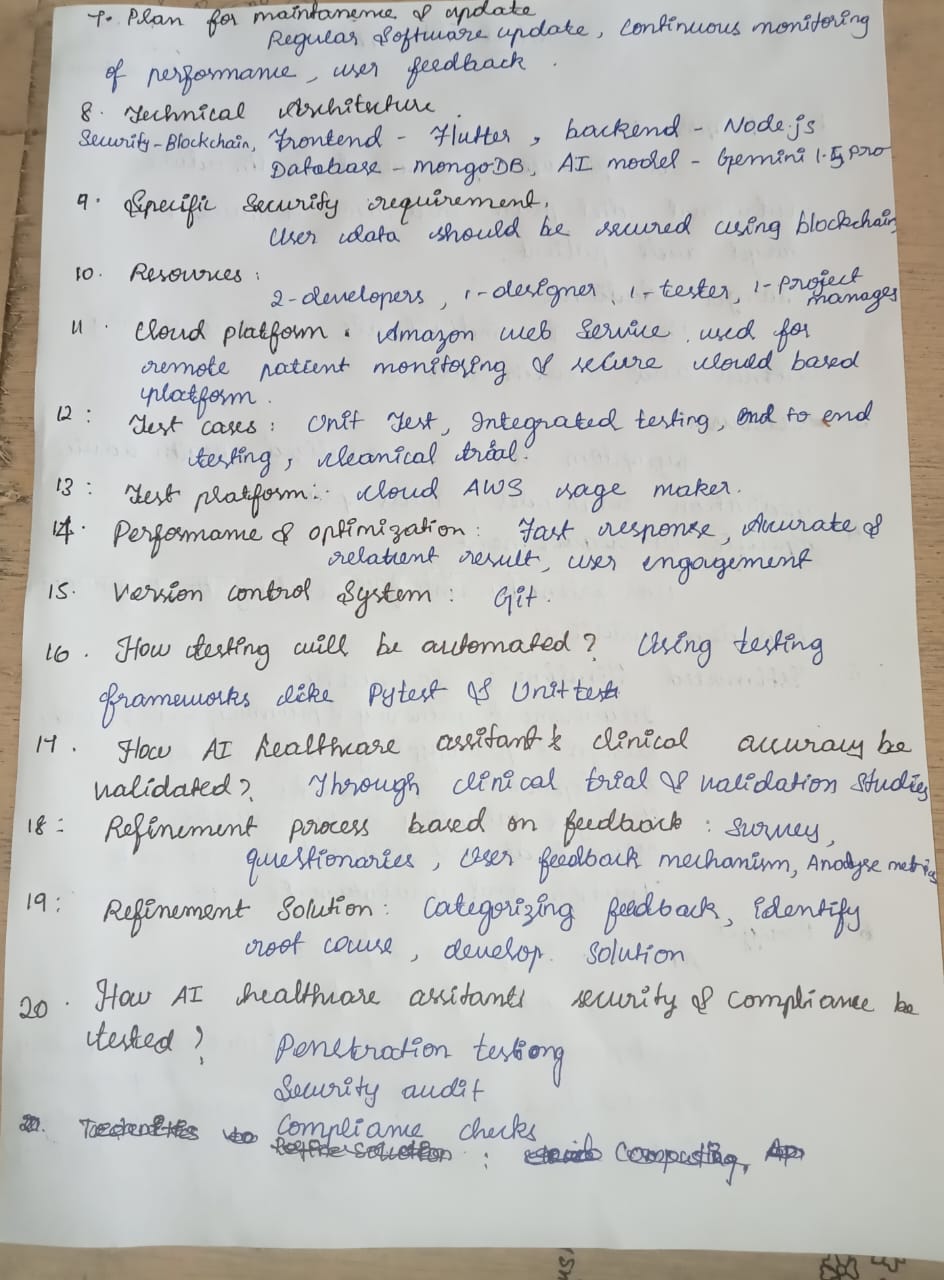 7. Plan for maintanence & update
Regular Software update, continuous monitoring
of performance, user feedback.
8. Technical Architecture
Security - Blockchain, Frontend - Flutter, backend - Node.js
Database - MongoDB, AI model - Gemini 1.5 pro
9. Specific Security requirement.
User data should be secured using blockchain
10. Resources :
2-developers, 1-designer, 1-tester, 1-Project
manages
11. Cloud platform. Amazon web Service, used for
remote patient monitoring & secure clould based
platform.
12: Test cases: Unit Test, Integrated testing, end to end
testing, cleanical trial.
13: Test platform: cloud AWS sage maker.
14. Performance & optimization: Fast response, Accurate &
relatient result, user engagement
15. Version control System: Git.
16. How testing will be automated? Using testing
frameworks like Pytest & Unit test
17. How AI healthcare assitant's clinical accuracy be
validated? Through clinical trial & validation Studies
18: Refinement process based on feedback: Survey,
questionaries, User feedback mechanism, Analyse metrics
19: Refinement Solution: Categorizing feedback, identify
root cause, develop. Solution
20. How AI healthcare assitants security & compliance be
tested?
Penetration testiong
Security audit
Compliance checks
: Computing,